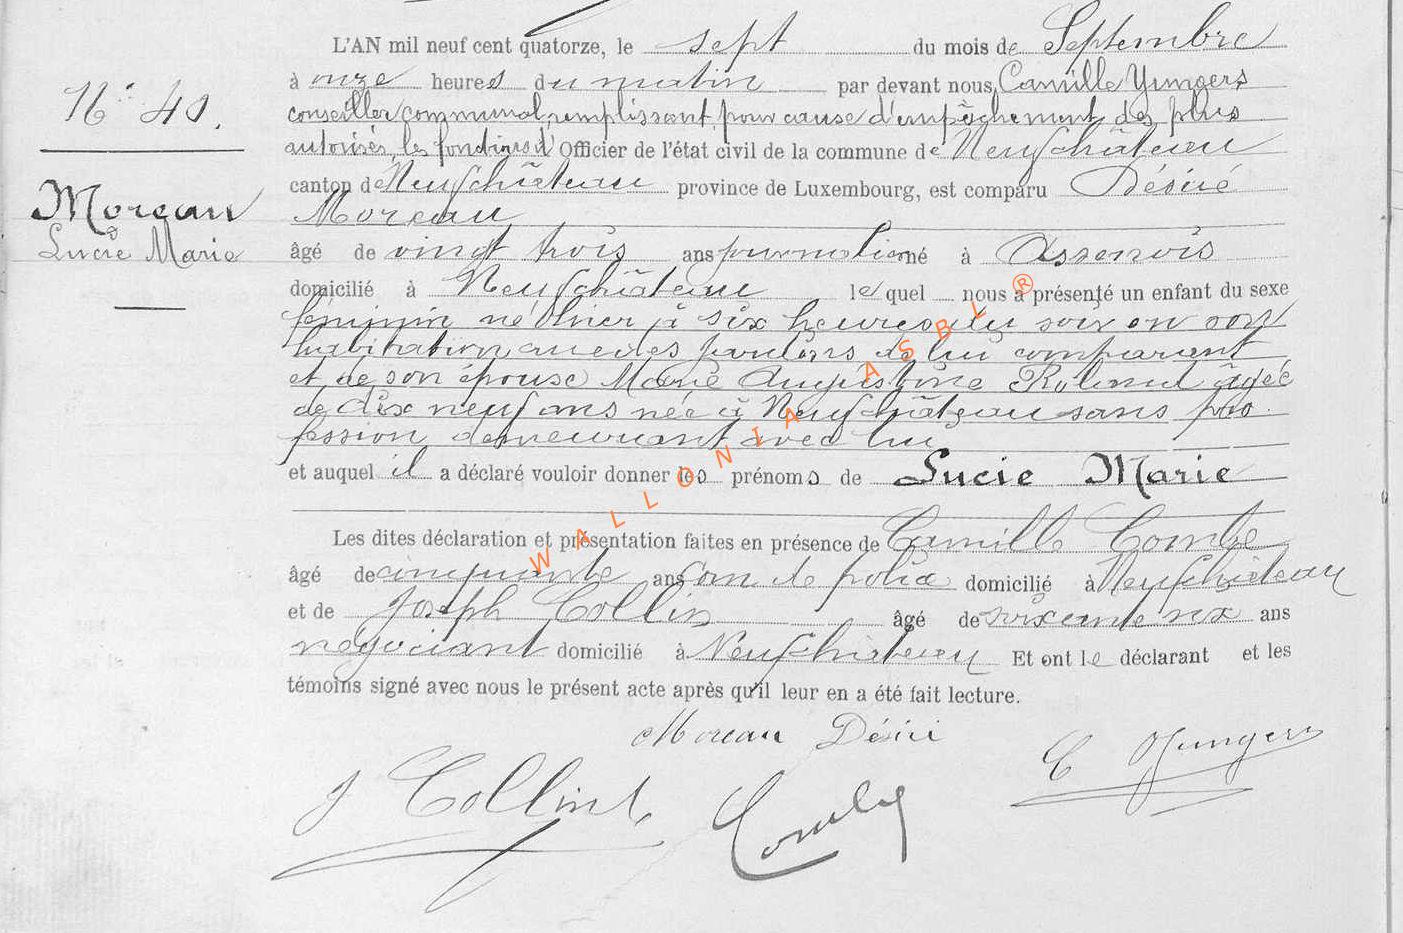 L'AN mil neuf cent quatorze, le sept du mois de Septembre
N° 40.
à onze heures du matin par devant nous, Camille Yungers
conseiller communal, remplissant, pour cause d'empêchement des plus
autorisés, les fonctions d'Officier de l'état civil de la commune de Neufchâteau
canton de Neufchâteau province de Luxembourg, est comparu Désiré
Moreau
Moreau
Lucie Marie
âgé de vingt trois ans journalier né à Assenois
domicilié à Neufchâteau lequel nous a présenté un enfant du sexe
féminin né hier à six heures du soir en son
habitation au de lui comparant
et de son épouse Marie Augustine Roland âgée
de dix neuf ans née à Neufchâteau sans pro
fession demeurant avec lui
et auquel il a déclaré vouloir donner les prénoms de Lucie Marie
Les dites déclaration et présentation faites en présence de Camille
âgé de cinquante ans com de police domicilié à Neufchâteau
et de Joseph Collin âgé de soixante six ans
négociant domicilié à Neufchâteau Et ont le déclarant et les
témoins signé avec nous le présent acte après qu'il leur en a été fait lecture.
Moreau Désiré
C Yungers
J Collin
WALLONIA ASBL ®